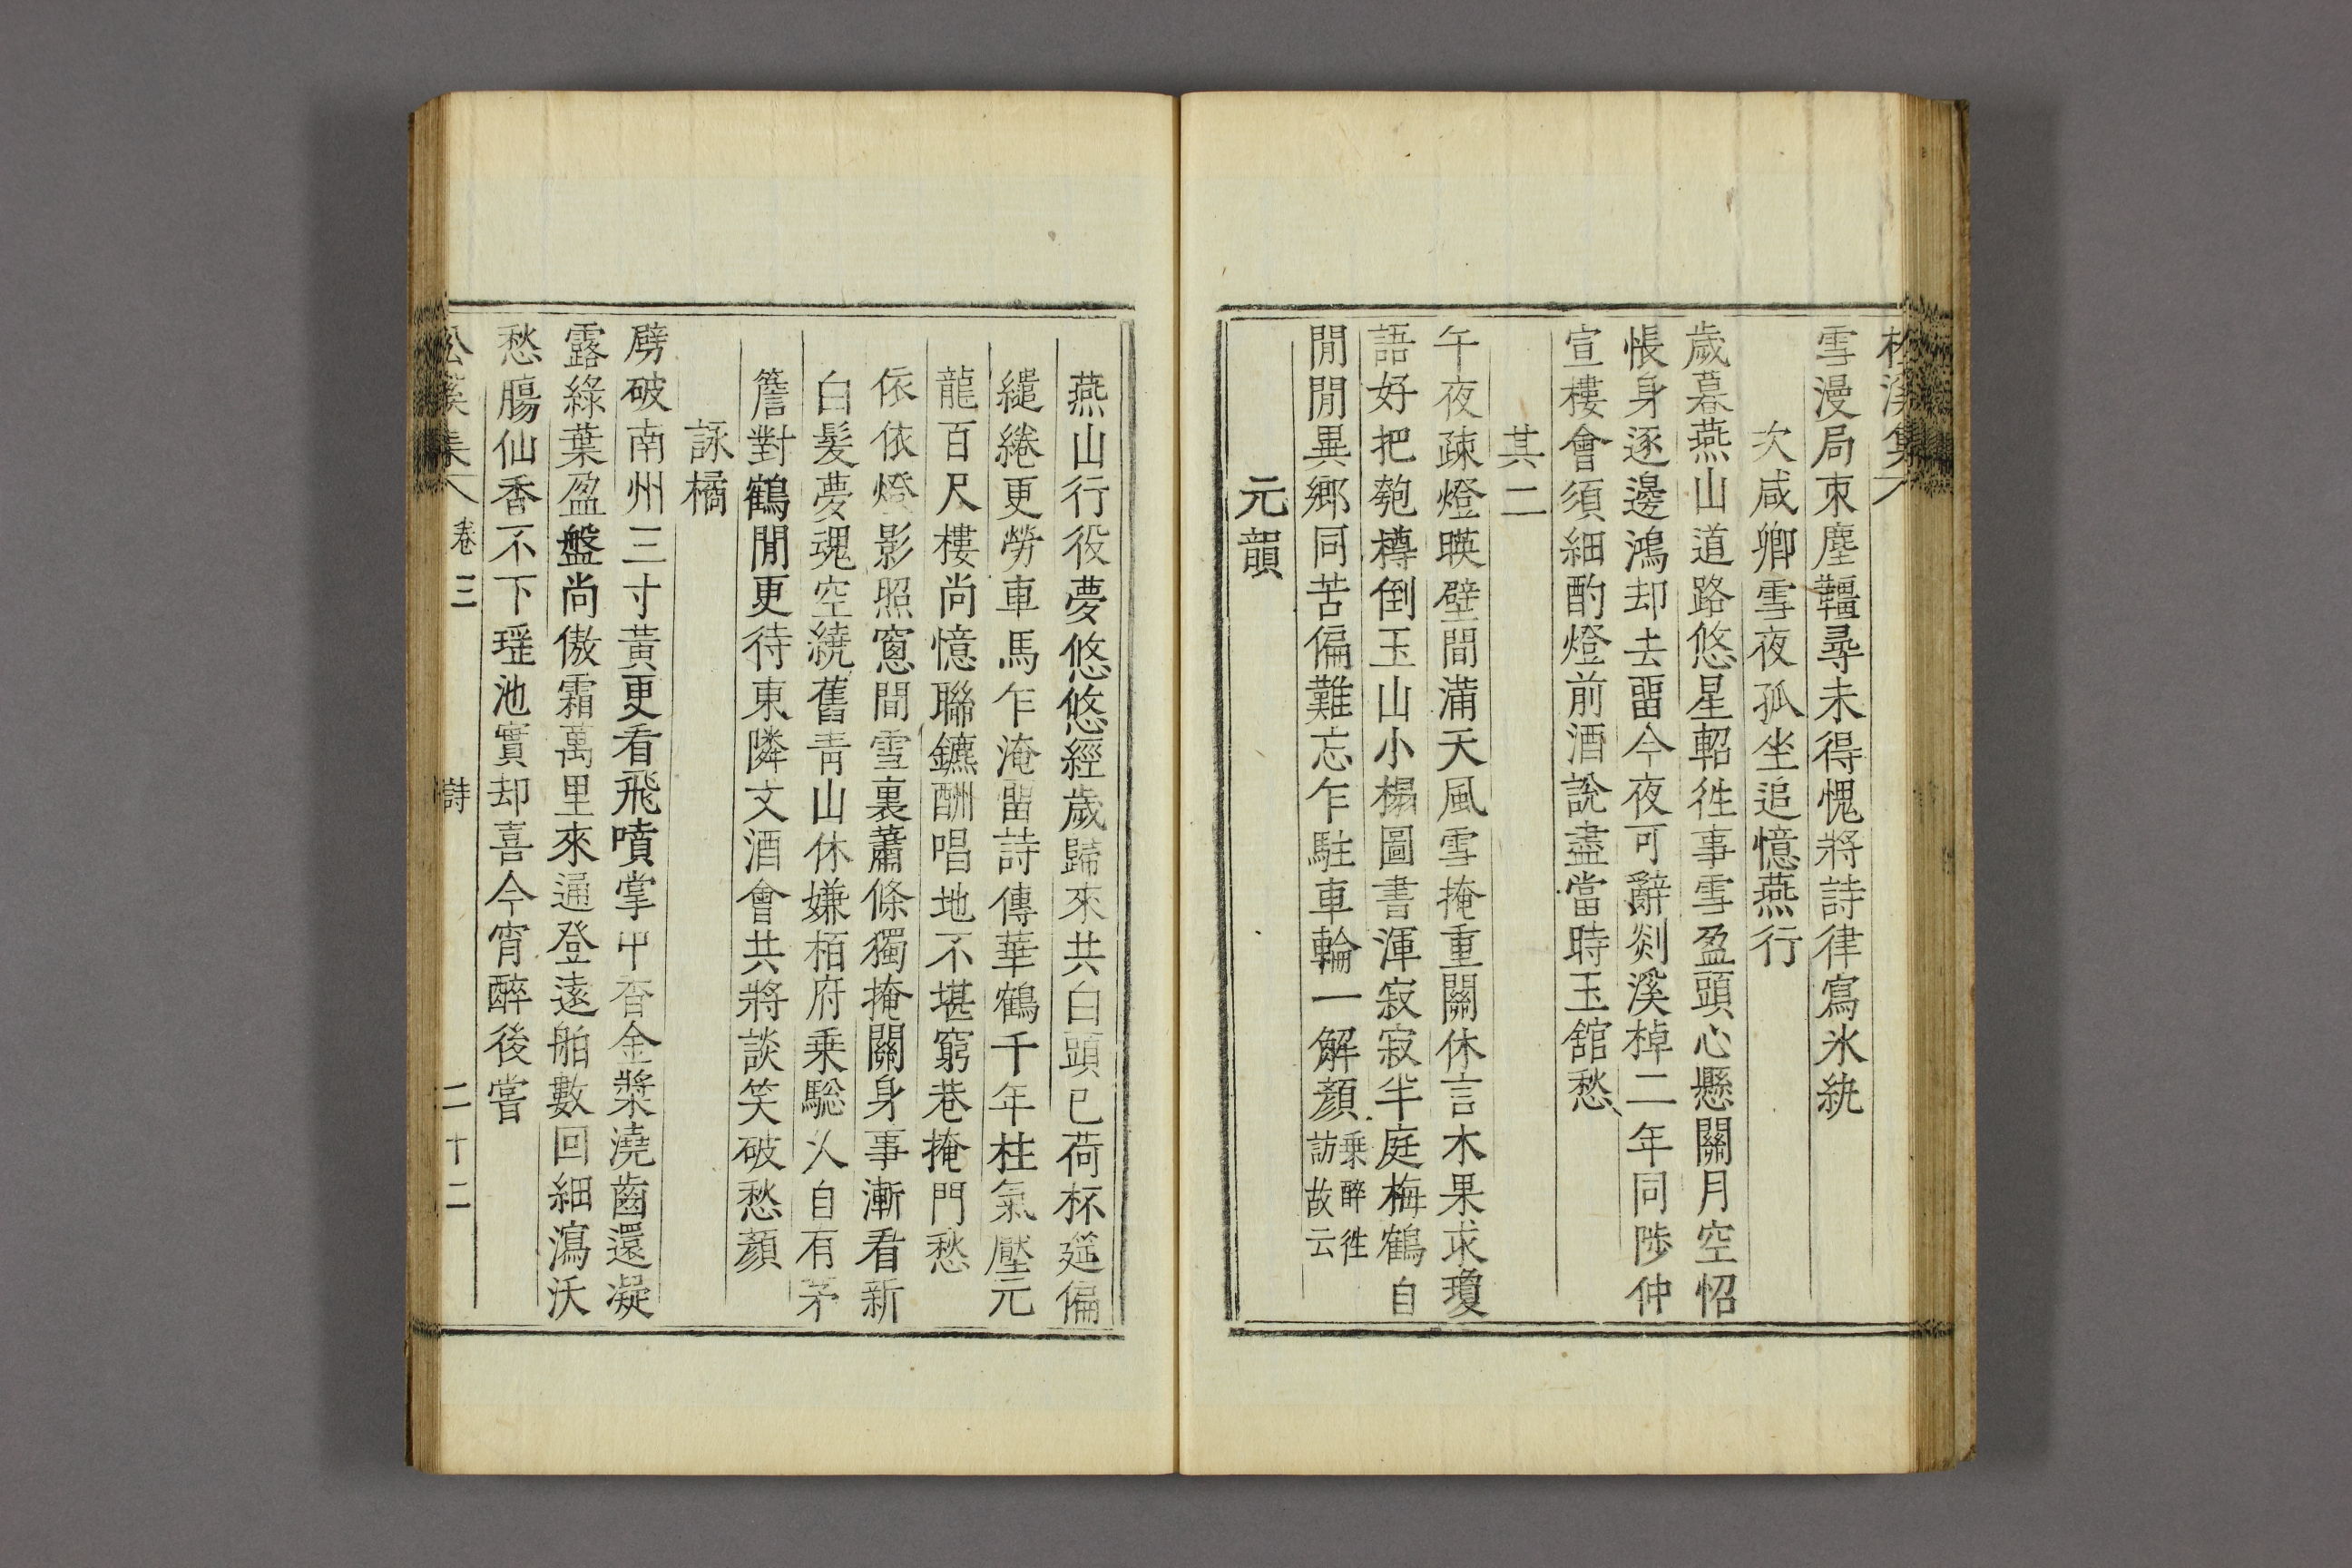 松溪集
雪漫局束塵韁尋未得愧將詩律寫氷紈
次咸卿雪夜孤坐追憶燕行
歲暮燕山道路悠星軺徃事雪盈頭心懸關月空怊
悵身逐邊鴻却去畱今夜可辭剡溪棹二年同陟仲
宣樓會須細酌燈前酒說盡當時玉舘愁
其二
午夜疎燈暎壁間滿天風雪掩重關休言木果求瓊
語好把匏樽倒玉山小榻圖書渾寂寂半庭梅鶴自
閒閒異鄕同苦偏難忘乍駐車輪一解顏乗醉徃訪故云
元韻
燕山行役夢悠悠經歲歸來共白頭已荷杯筵偏
繾綣更勞車馬乍淹畱詩傳華鶴千年柱氣壓元
龍百尺樓尚憶聯鑣酬唱地不堪窮巷掩門愁
依依燈影照窻間雪裏蕭條獨掩關身事漸看新
白髮夢魂空繞舊靑山休嫌栢府乗驄人自有茅
簷對鶴閒更待東隣文酒會共將談笑破愁顏
詠橘
劈破南州三寸黃更看飛噴掌中香金漿澆齒還凝
露綠葉盈盤尚傲霜萬里來逾登遠舶數回細瀉沃
愁膓仙香不下瑶池實却喜今宵醉後嘗
松溪集 卷三 詩 二十二